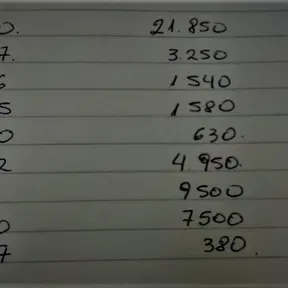 0. 21.850
7. 3.250
6 1540
5 1580
0 630.
2 4.950.
9500
0 7500
7 380.